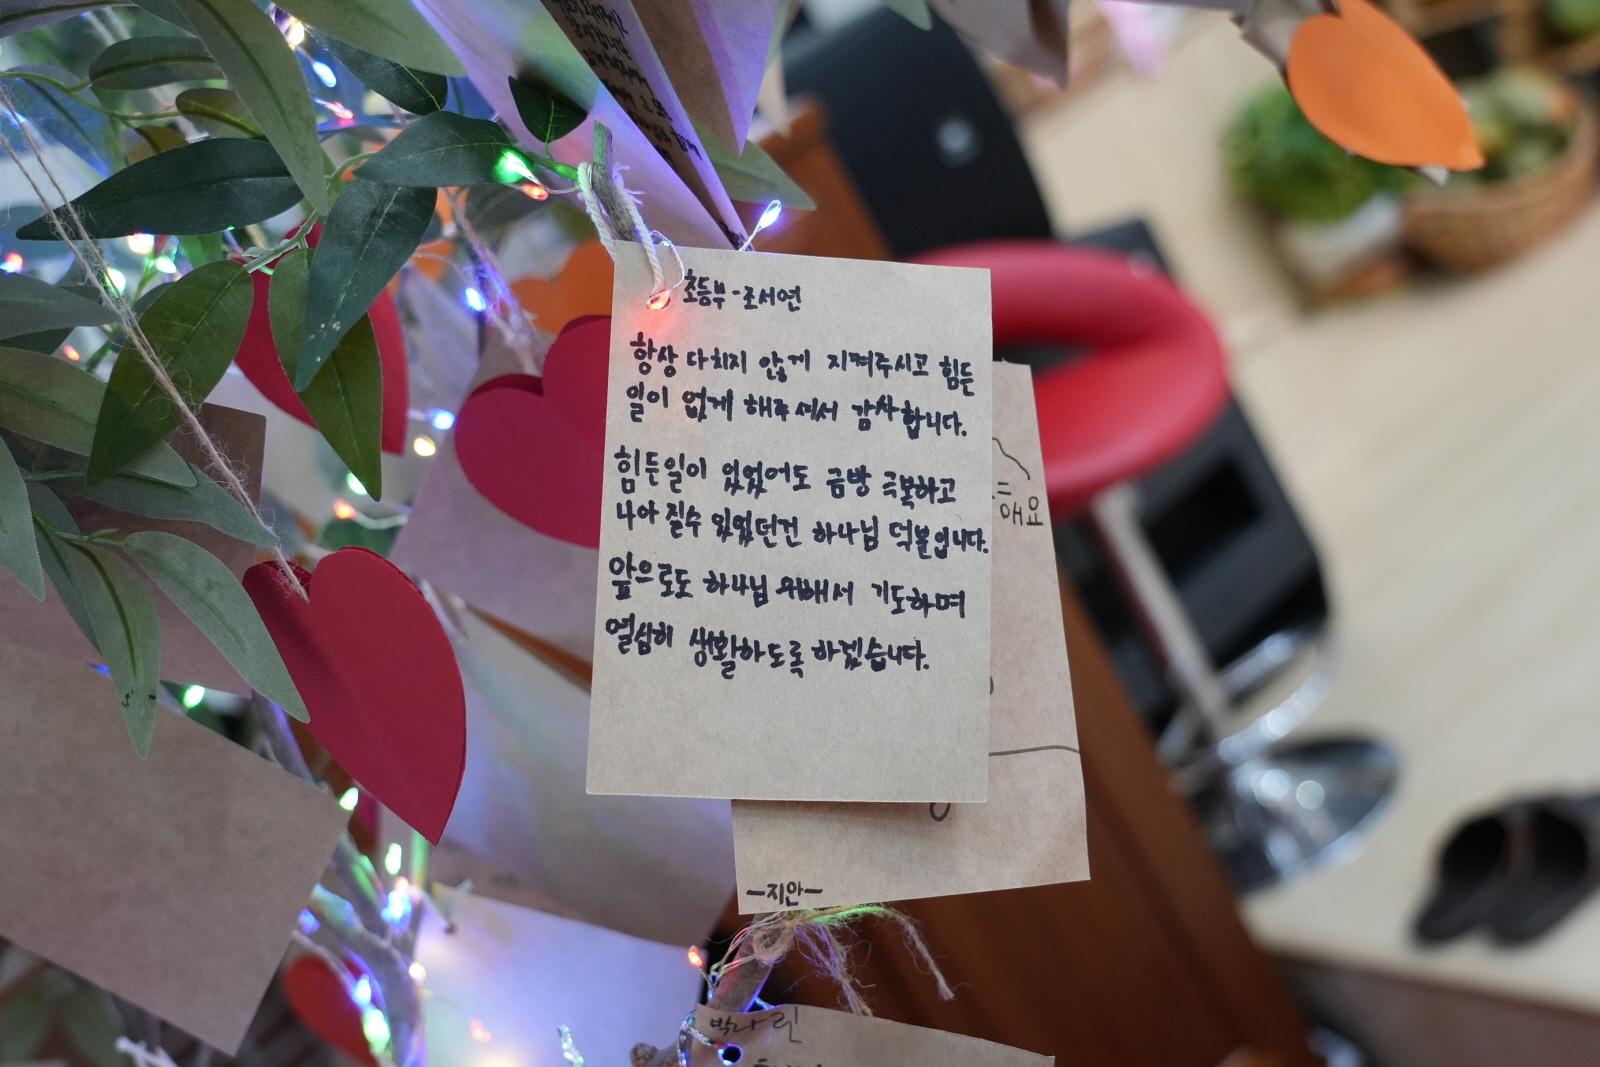 초등부 - 조서연
항상 다치지 않게 지켜주시고 힘든
일이 없게 해주셔서 감사합니다.
힘든일이 있었어도 금방 극복하고
나아 질수 있었던건 하나님 덕분입니다.
앞으로도 하나님 위해서 기도하며
열심히 생활하도록 하겠습니다.
해요
-지안-
박나린